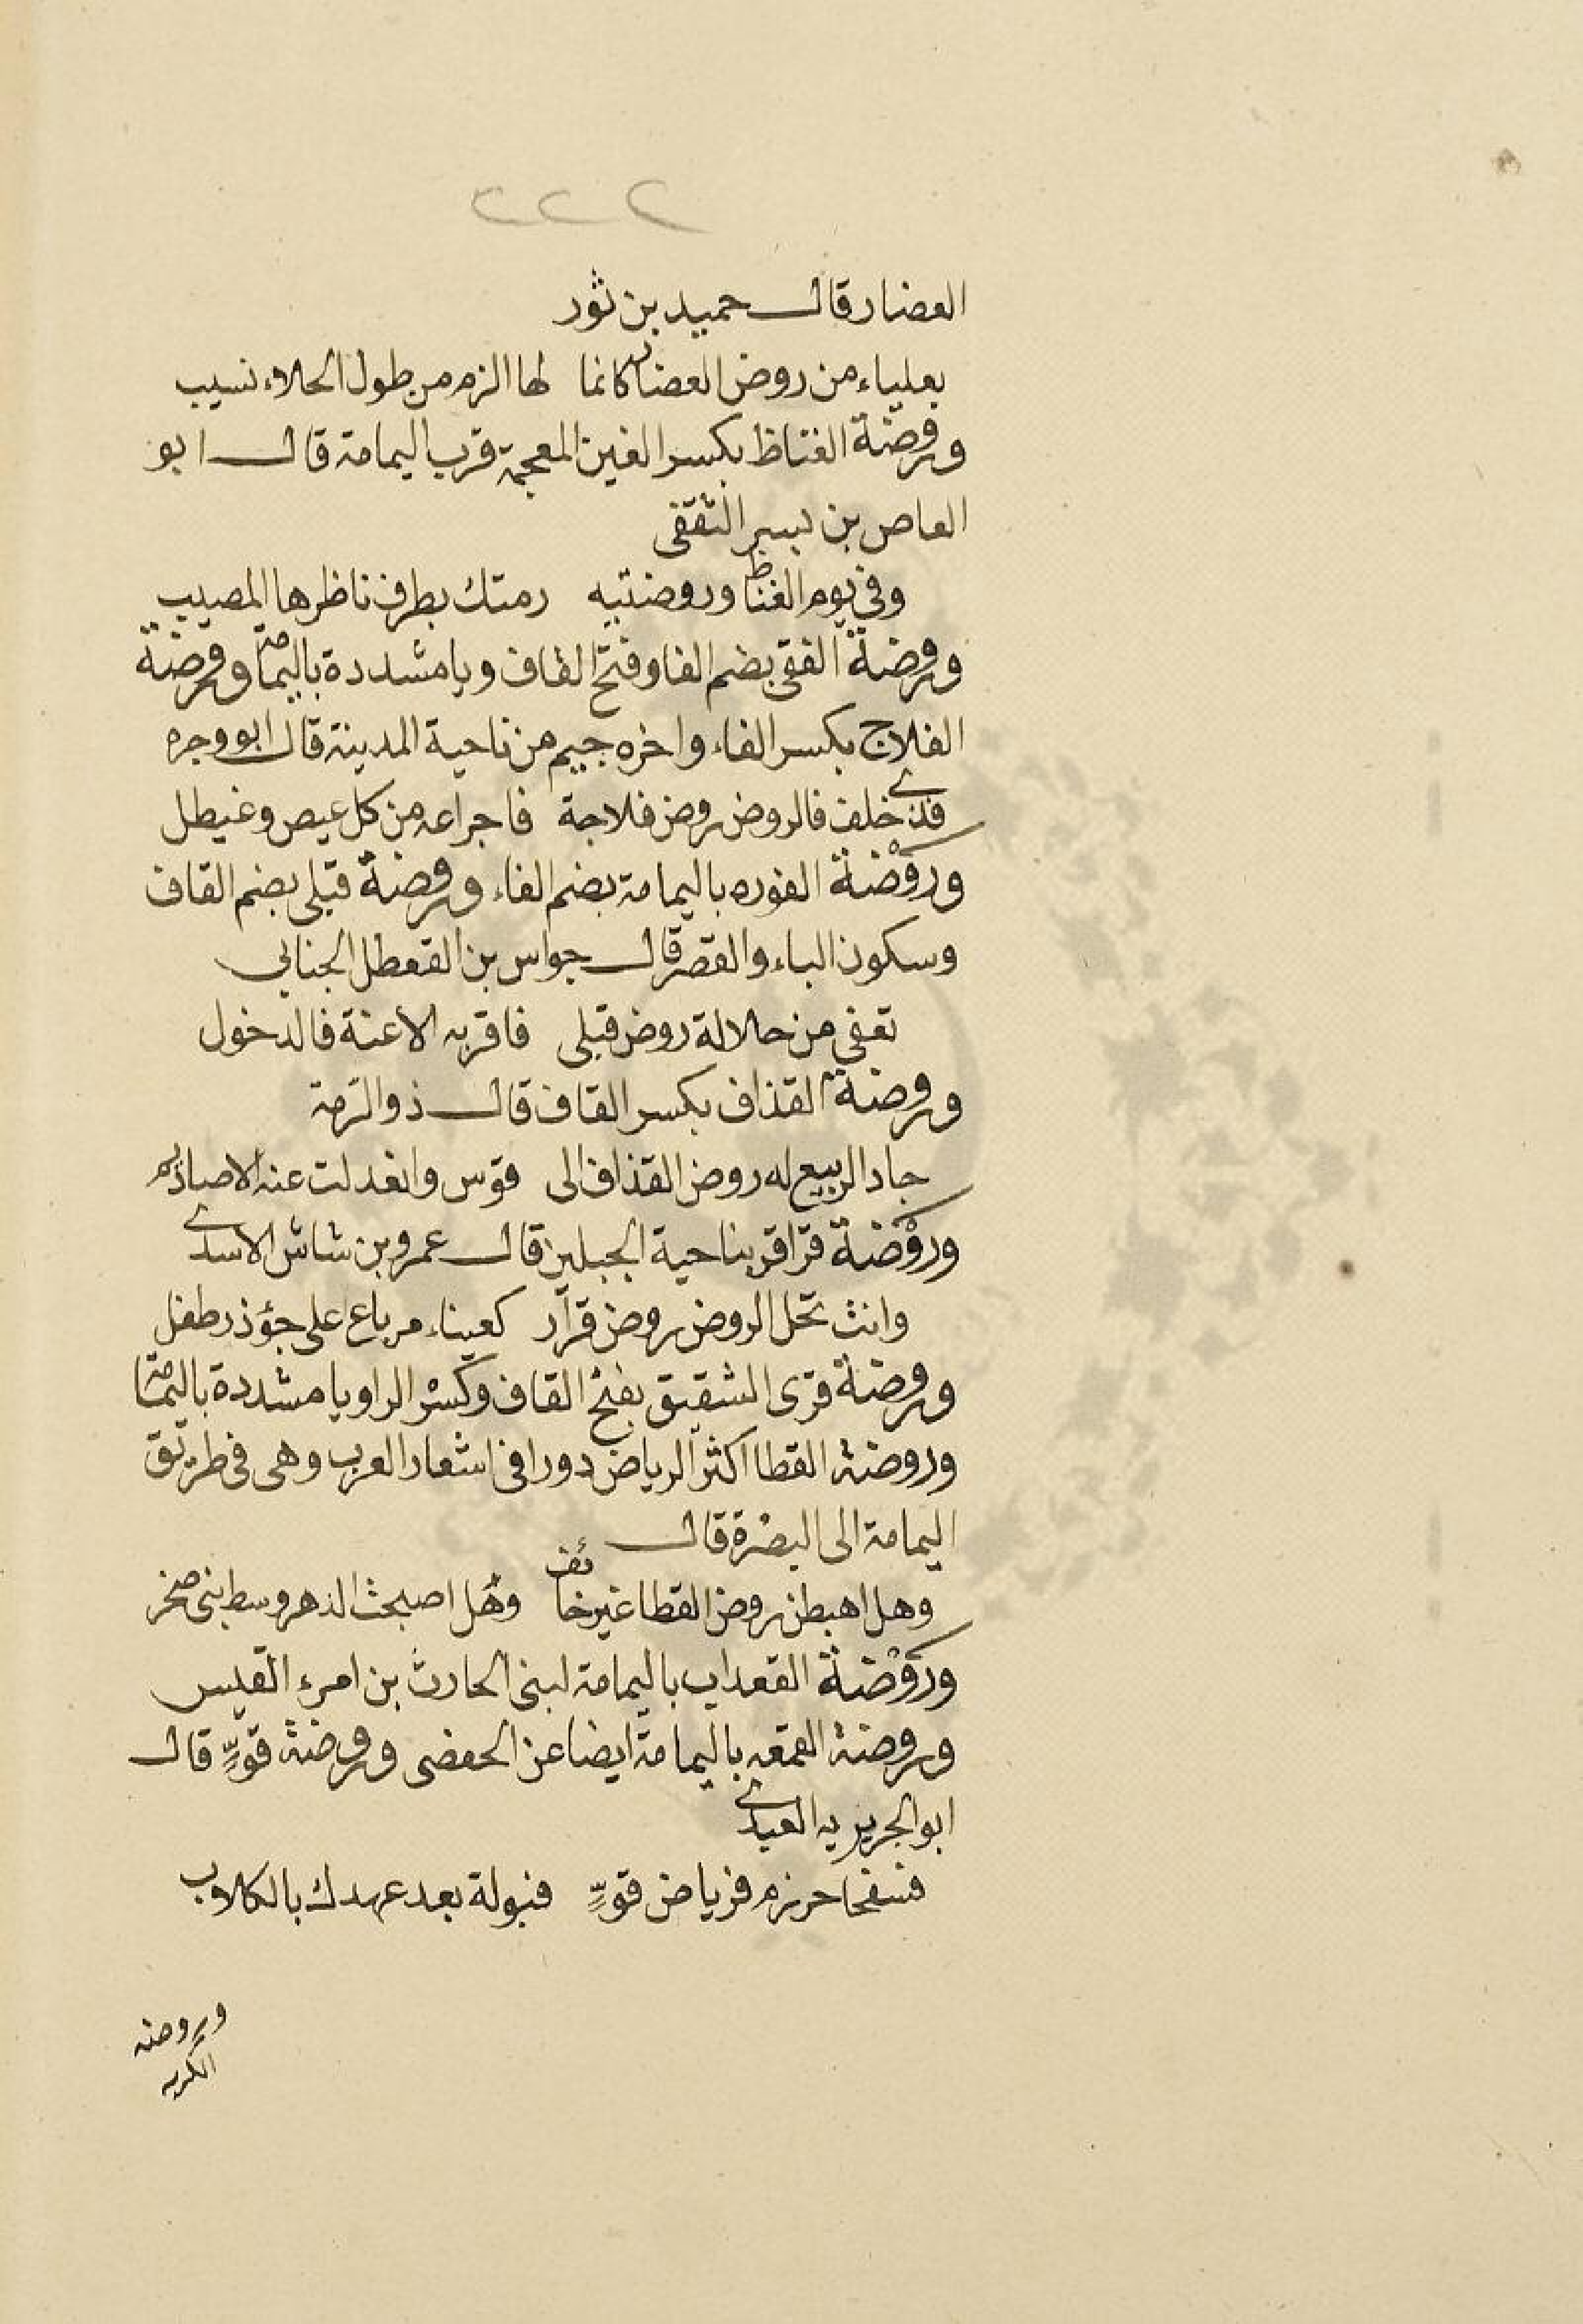 ٢٢٢
العضار قال حميد بن ثور
بعلياء من روض العضار كانما لها الزم من طول الخلاء نسيب
وروضة الغناظ بكسر الغين المعجمة قرب اليمامة قال ابو
العاص بن بسير الثقفى
وفى يوم الغناظ وروضتيه رمتك بطرف ناظرها المصيب
وروضة الفقى بضم الفا وفتح القاف ويا مشددة باليمامة وروضة
الفلاج بكسر الفاء واخره جيم من ناحية المدينة قال ابو وجزه
فذى خلف فالروض روض فلاجة فاجراعه من كل عيص وغيطل
وروضة الفوره باليمامة بضم الفاء وروضة قبلى بضم القاف
وسكون الباء والقصر قال جواس بن القعطل الجنابي
تعفى من حلالة روض قبلى فاقريه الاعنة فالدخول
وروضة القذاف بكسر القاف قال ذو الرمة
جاد الربيع له روض القذاف الى قوس وانعدلت عنه الاصاريم
وروضة قراقر بناحية الجبلين قال عمرو بن شاش الاسدى
وانت تحل الروض روض قرآر كعيناء مرباع على جؤذر طفل
وروضة قرى الشقيق بفتح القاف وكسر الرا ويا مشددة باليمامة
وروضة القطا اكثر الرياض دورا فى اشعار العرب وهى فى طريق
اليمامة الى البصرة قال
وهل اهبطن روض القطا غير خائف وهل اصبحت الدهر وسط بنى صخر
وروضة القعداب باليمامة لبنى الحارث بن امرء القيس
وروضة القمعه باليمامة ايضا عن الحفصى وروضة قوٍّ قال
ابو الجريريه العبدى
فسفحا حرزم فرياض قوٍّ فنبولة بعد عهدك بالكلاب
وروضة
الكريه